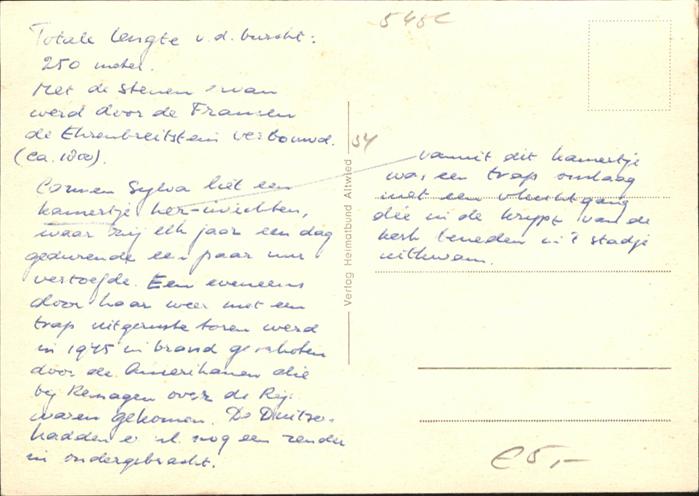 Totale lengte v.d. burcht:
250 meter.
Met de stenen ervan
werd door de Fransen
de Ehrenbreitstein verbouwd.
(ca. 1800).
Carmen Sylva liet een
kamertje her-inrichten,
waar zij elk jaar een dag
gedurende een paar uur
vertoefde. Een eveneens
door haar weer met een
trap uitgeruste toren werd
in 1945 in brand geschoten
door de Amerikanen die
bij Remagen over de Rijn
waren gekomen. De Duitsers
hadden er nl nog een zender
in ondergebracht.
545C
54
Verlag Heimatbund Altwied
vanuit dit kamertje
was een trap omlaag
met een vluchtgang
die in de krypt van de
kerk beneden in 't stadje
uitkwam.
€5,-